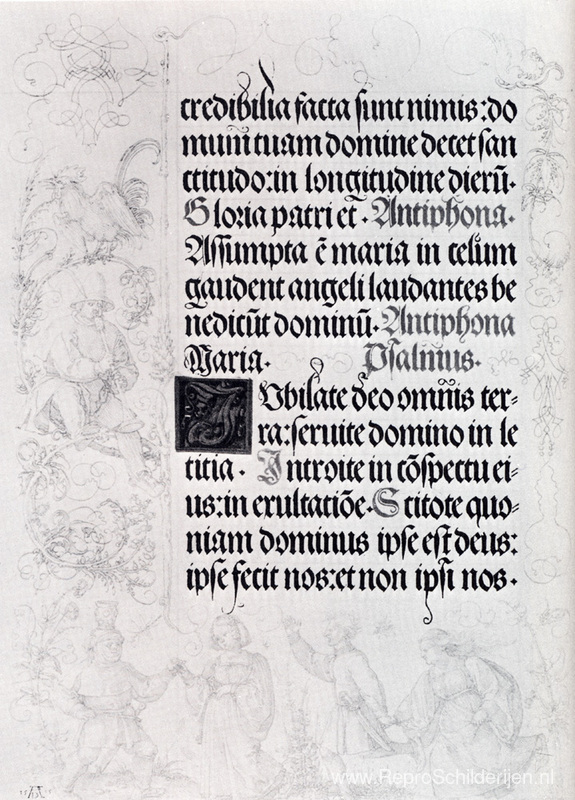 credibilia facta sunt nimis: do
mum tuam domine decet san
ctitudo: in longitudine dierū.
Gloria patri et. Antiphona.
Assumpta ē maria in celum
gaudent angeli laudantes be
nedicūt dominū. Antiphona
Maria. Psalmus.
IVbilate deo omnis ter-
ra: seruite domino in le
titia. Introite in cōspectu ei-
us: in exultatiōe. Scitote quo-
niam dominus ipse est deus:
ipse fecit nos: et non ipsi nos.
www.ReproSchilderijen.nl